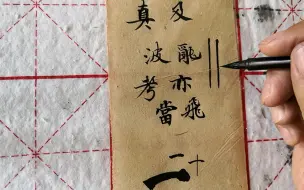 亂亦飛十
真波考當二